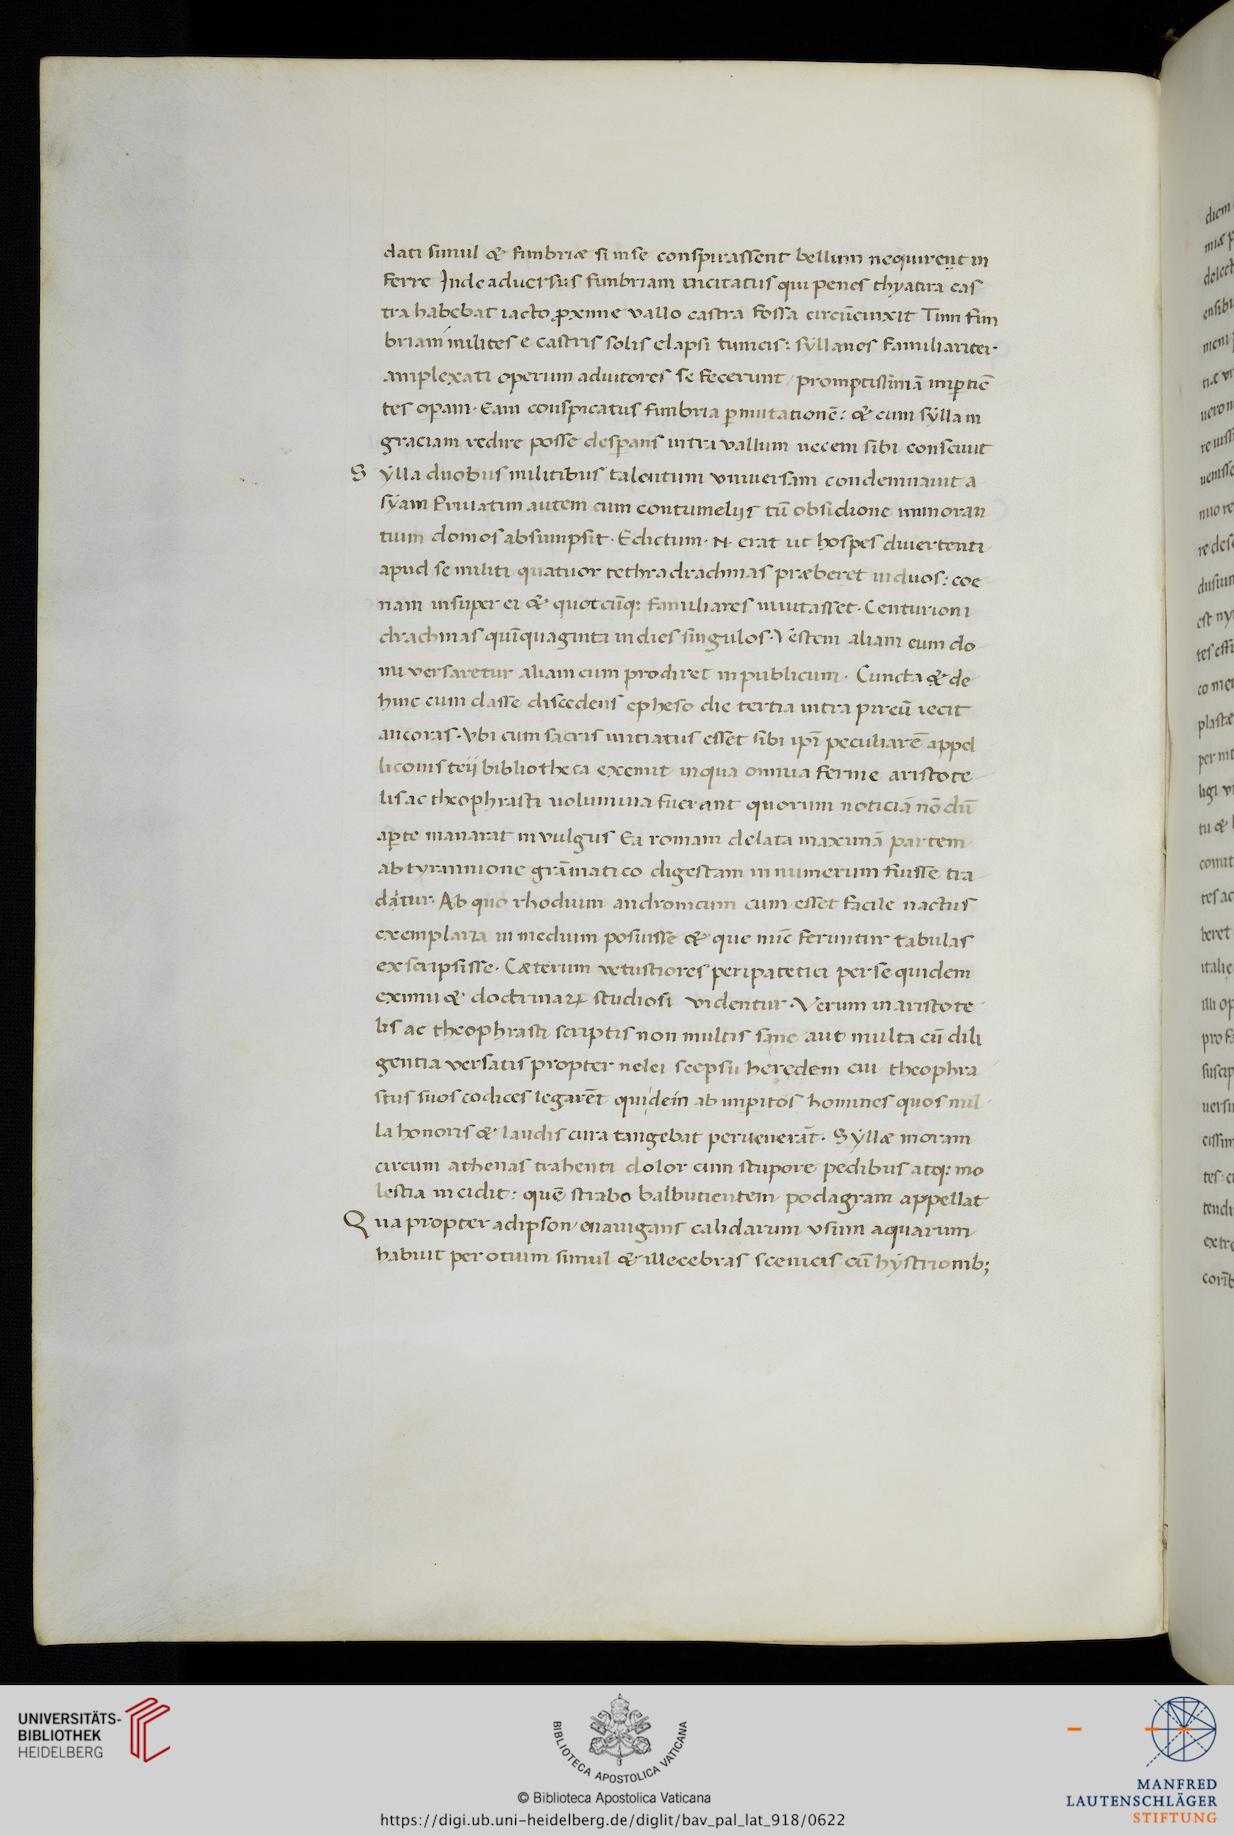 dati simul & fimbriæ si in se conspirassent bellum nequirent in
ferre Inde aduersus fimbriam incitatus qui penes thyatira cas
tra habebat iacto ꝓxime vallo castra fossa circūcinxit Tum fim
briani milites e castris solis elapsi tunicis: syllanos familiariter
amplexati operum adiutores se fecerunt promptissimā impertiē
tes operam. Eam conspicatus fimbria ꝑmutationē: & cum syllam
graciam redire posse desperans intra vallum necem sibi consciuit
Sylla duobus militibus talentum vniuersam condemnauit a
syam Priuatim autem cum contumeliis tū obsidione immoran
tium domos absumpsit. Edictum .N. erat ut hospes diuertenti
apud se militi quatuor tethradrachmas præberet in duos: coe
nam insuper ei & quotcūq: familiares inuitasset. Centurioni
drachmas quīquaginta in dies singulos. Vestem aliam cum do
mi versaretur aliam cum prodiret in publicum. Cuncta & de
hinc cum classe discedens epheso die tertia intra pireū iecit
ancoras. Vbi cum sacris initiatus esset sibi ipī peculiarē appel
liconis teij bibliotheca exemit in qua omnia ferme aristote
lis ac theophrasti uolumina fuerant quorum noticiā nō dū
aꝑte manarat in vulgus Ea romam delata maximā partem
ab tyrannione grāmatico digestam in numerum fuisse tra
datur. Ab quo rhodium andronicum cum esset facile nactus
exemplaria in medium posuisse & que nūc feruntur tabulas
exscripsisse. Cæterum vetustiores peripatetici per se quidem
eximii & doctrinaꝝ studiosi videntur. Verum in aristote
lis ac theophrasti scriptis non multis sane aut multa cū dili
gentia versatis propter nelei scepsii heredem cui theophra
stus suos codices legarēt quidem ab imperitos homines quos nul
la honoris & laudis cura tangebat peruenerāt. Syllæ moram
circum athenas trahenti dolor cum stupore pedibus atq: mo
lestia incidit: quē strabo balbutientem podagram appellat
Qua propter adipson enauigans calidarum vsum aquarum
habuit per otium simul & illecebras scenicis cū hystrionib;
diem
delect
ensibu
ueron
plastæ
comit
tes ac
beret
italie
UNIVERSITÄTS-
BIBLIOTHEK
HEIDELBERG
BIBLIOTECA APOSTOLICA VATICANA
© Biblioteca Apostolica Vaticana
https://digi.ub.uni-heidelberg.de/diglit/bav_pal_lat_918/0622
MANFRED
LAUTENSCHLÄGER
STIFTUNG